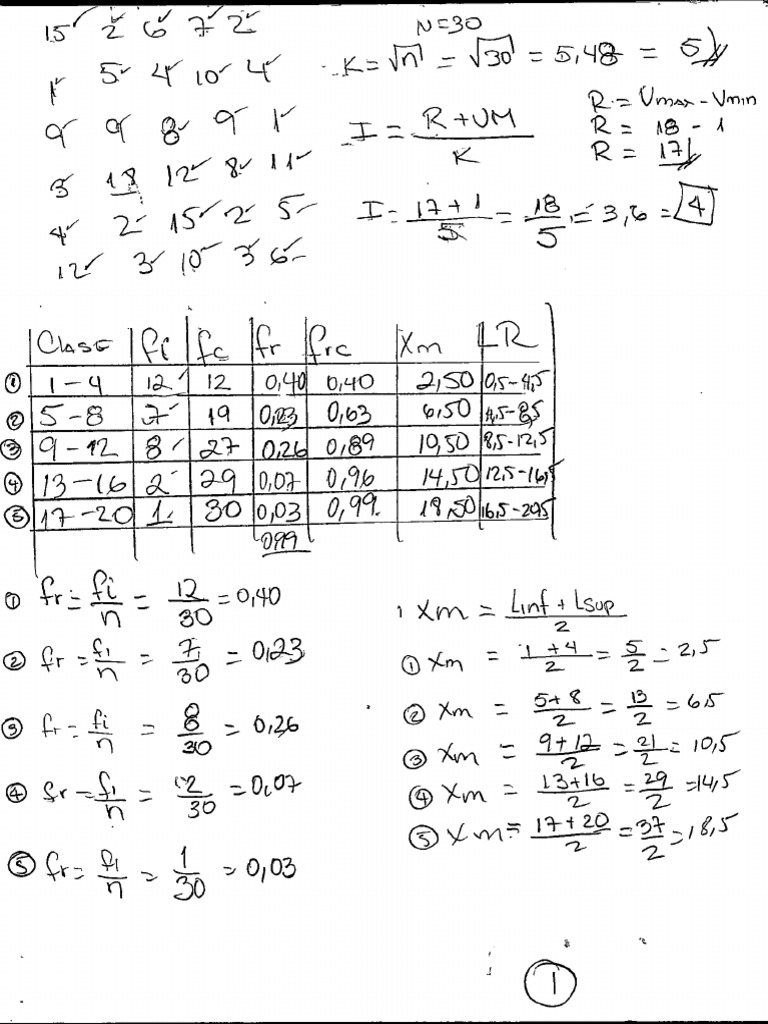 15 2 6 7 2
1 5 4 10 4
9 9 8 9 1
3 18 12 8 11
4 2 15 2 5
12 3 10 3 6
N=30
K = √n = √30 = 5,48 = 5
I = R+UM / K
R = Vmax - Vmin
R = 18 - 1
R = 17
I = 17+1 / 5 = 18 / 5 = 3,6 = 4
Clase fi fc fr frc Xm LR
① 1-4 12 12 0,40 0,40 2,50 0,5-4,5
② 5-8 7 19 0,23 0,63 6,50 4,5-8,5
③ 9-12 8 27 0,26 0,89 10,50 8,5-12,5
④ 13-16 2 29 0,07 0,96 14,50 12,5-16,5
⑤ 17-20 1 30 0,03 0,99 18,50 16,5-20,5
0,99
① fr = fi / n = 12 / 30 = 0,40
② fr = fi / n = 7 / 30 = 0,23
③ fr = fi / n = 8 / 30 = 0,26
④ fr = fi / n = 2 / 30 = 0,07
⑤ fr = fi / n = 1 / 30 = 0,03
Xm = Linf + Lsup / 2
① Xm = 1+4 / 2 = 5 / 2 = 2,5
② Xm = 5+8 / 2 = 13 / 2 = 6,5
③ Xm = 9+12 / 2 = 21 / 2 = 10,5
④ Xm = 13+16 / 2 = 29 / 2 = 14,5
⑤ Xm = 17+20 / 2 = 37 / 2 = 18,5
1